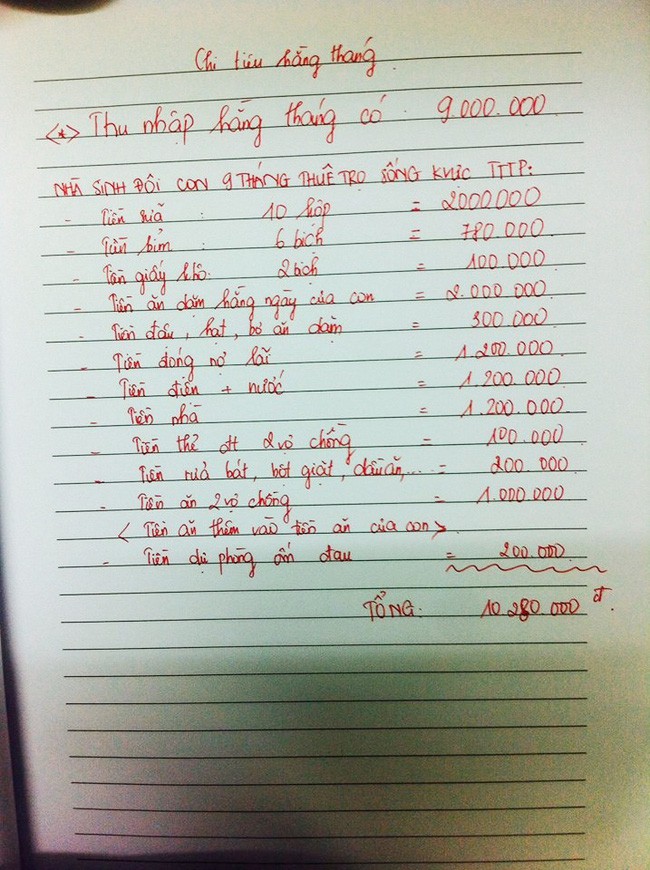 Chi tiêu hằng tháng
<*> Thu nhập hằng tháng có : 9.000.000
NHÀ SINH ĐÔI CON 9 THÁNG THUÊ TRỌ SỐNG KHU VỰC TTTP:
- Tiền sữa : 10 hộp = 2000000
- Tiền bỉm : 6 bịch = 780.000
- Tiền giấy khô: 2 bịch = 100.000
- Tiền ăn dặm hằng ngày của con = 2.000.000
- Tiền dầu, hạt, bơ ăn dặm = 300.000
- Tiền đóng nợ lãi = 1.200.000
- Tiền điện + nước = 1.200.000
- Tiền nhà = 1.200.000
- Tiền thẻ đt 2 vợ chồng = 100.000
- Tiền rửa bát, bột giặt, dầu ăn,... = 200.000
- Tiền ăn 2 vợ chồng = 1.000.000
< Tiền ăn thêm vào tiền ăn của con >
- Tiền dự phòng ốm đau = 200.000
TỔNG: 10 280.000 đ.